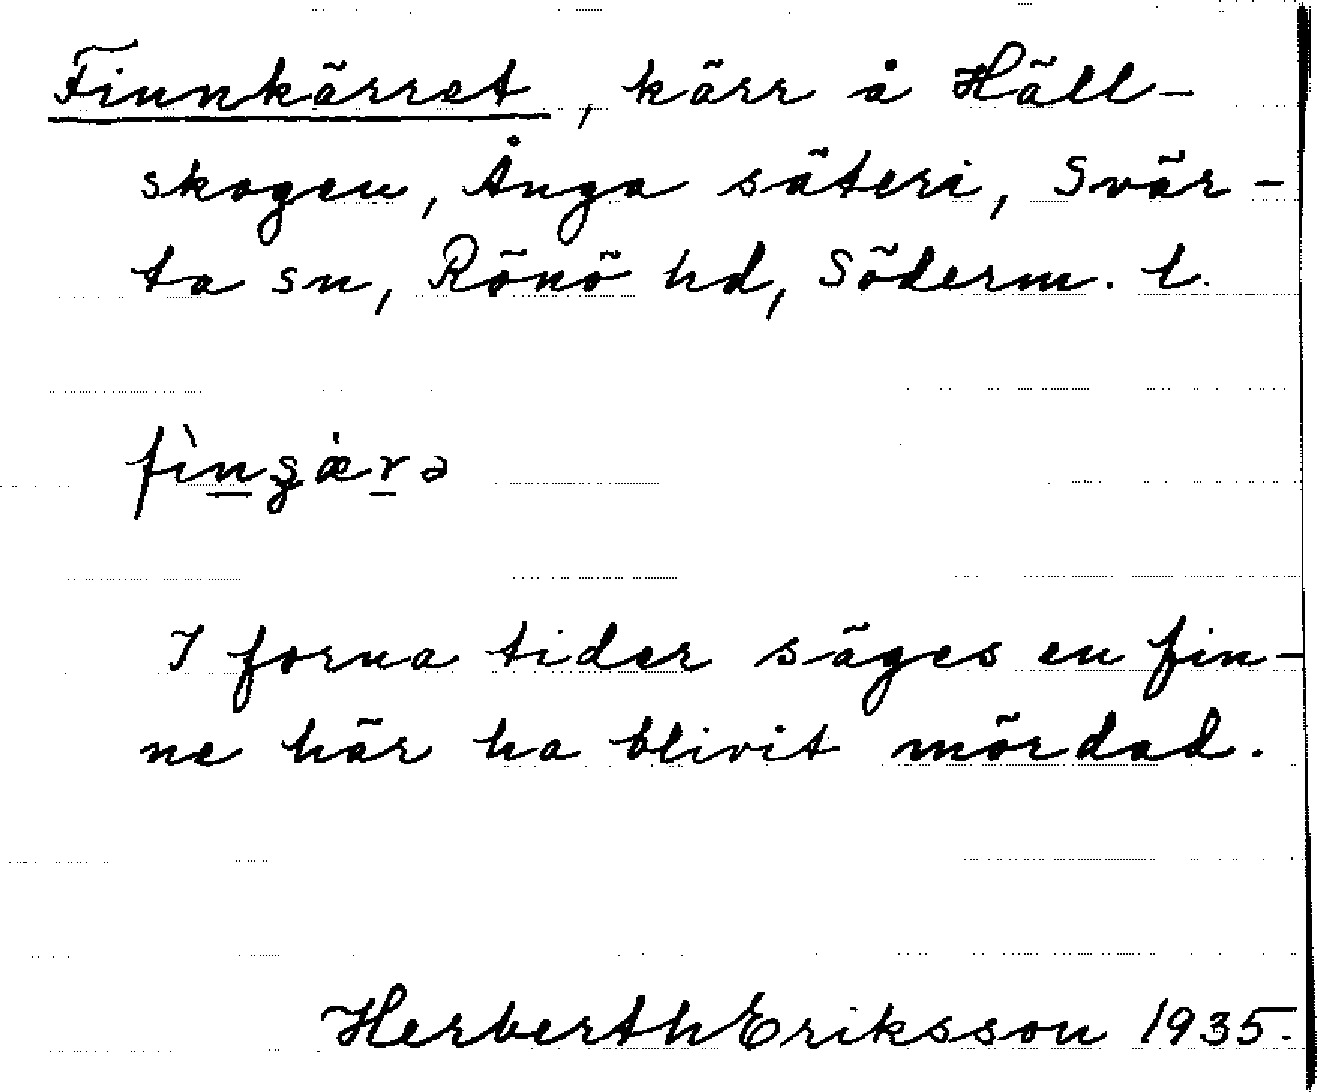 Finnkärret, kärr å Häll-
skogen, Ånga säteri, Svär-
ta sn, Rönö hd, Söderm. l.
I forna tider säges en fin-
ne här ha blivit mördad.
Herberth Eriksson 1935.